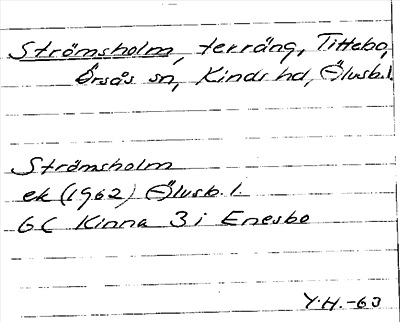 Strömsholm, terräng, Tittebo,
Örsås sn, Kinds hd, Älvsb.l.
Strömsholm
ek (1962) Älvsb.l.
6C Kinna 3 i Enesbo
Y.H.-63